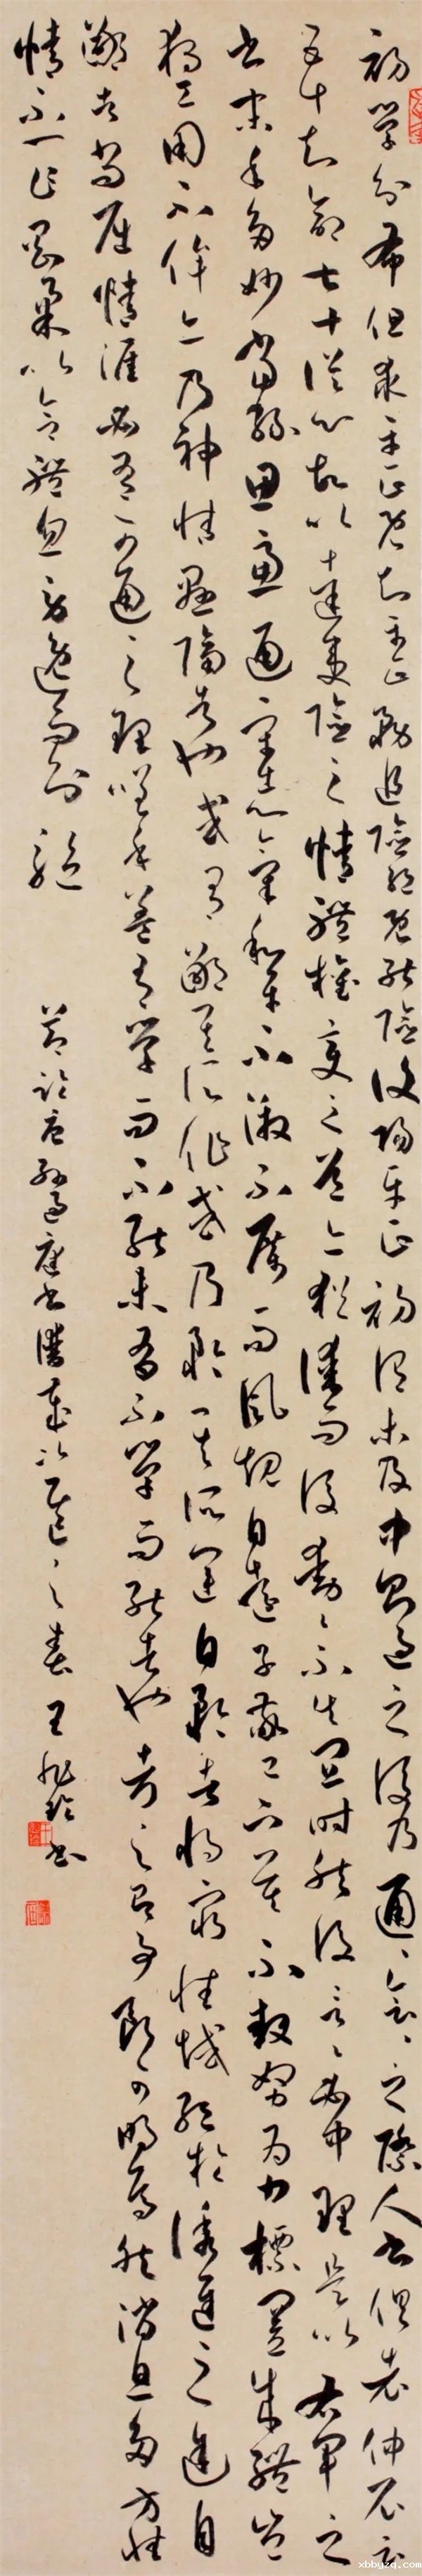 初學分布但求平正既知平正務追險絕既能險復歸平正初謂未及中則過之後乃通〻會〻之際人書俱老仲尼云
五十知命七十從心故以達夷險之情體權變之道亦猶謀而後動〻不失宜時然後言〻必中理是以右軍之
書末年多妙當緣思慮通審志氣和平不激不厲而風規自遠子敬已下莫不鼓努為力標置成體豈
獨工用不侔亦乃神情懸隔者也或有鄙其所作或乃矜其所運自矜者將窮性域絕於誘進之途自
鄙者尚屈情涯必有可通之理嗟乎蓋有學而不能未有不學而能者也考之即事斷可明焉然消息多方性
情不一乍剛柔以合體忽勞逸而分驅
節臨唐孫過庭書譜歲次之春王書
xbbyzq.com